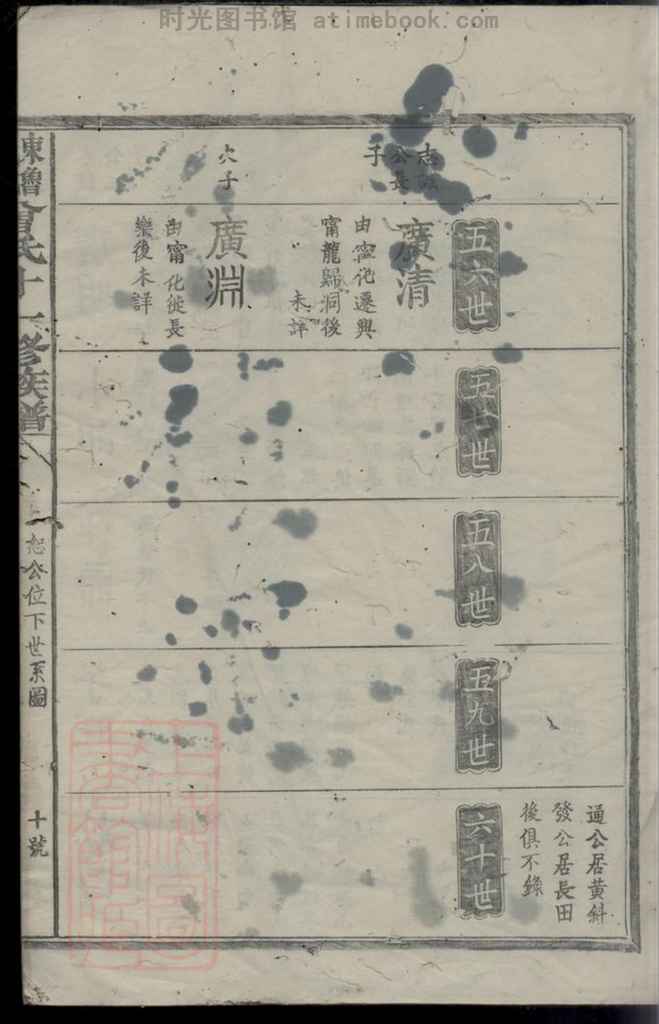 时光图书馆 - atimebook.com
通公居黃斜
發公居長田
後俱不錄
五六世
志
公長
子
廣清
由甯化遷興
甯龍歸洞後
未詳
次子
廣淵
由甯化徙長
樂後未詳
五七世
五八世
五九世
六十世
東魯曾氏十一修族譜
公位下世系圖
十號